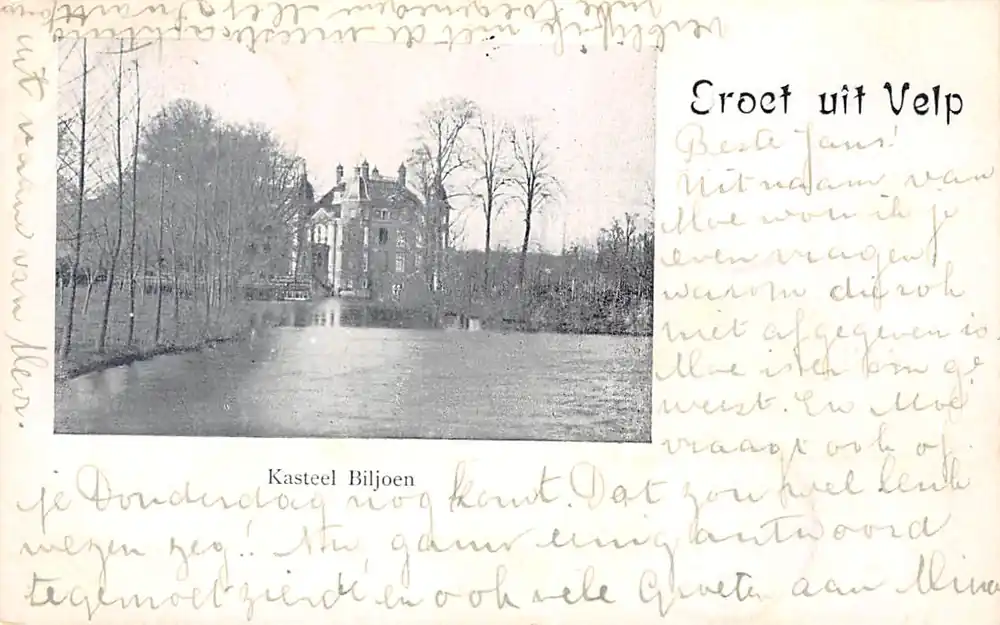 Groet uit Velp
Beste Jans!
Uit naam van
Moe won ik je
even vragen
warom die rok
niet afgegeven is
Moe is er om ge
weest. En Moe
vraagt ook of
Kasteel Biljoen
je Donderdag nog komt. Dat zou wel leuk
wezen zeg! Nu, gauw eenig antwoord
tegemoet ziende en ook vele Groeten aan Mina
uit naam van Moe.
verblijf ik met de